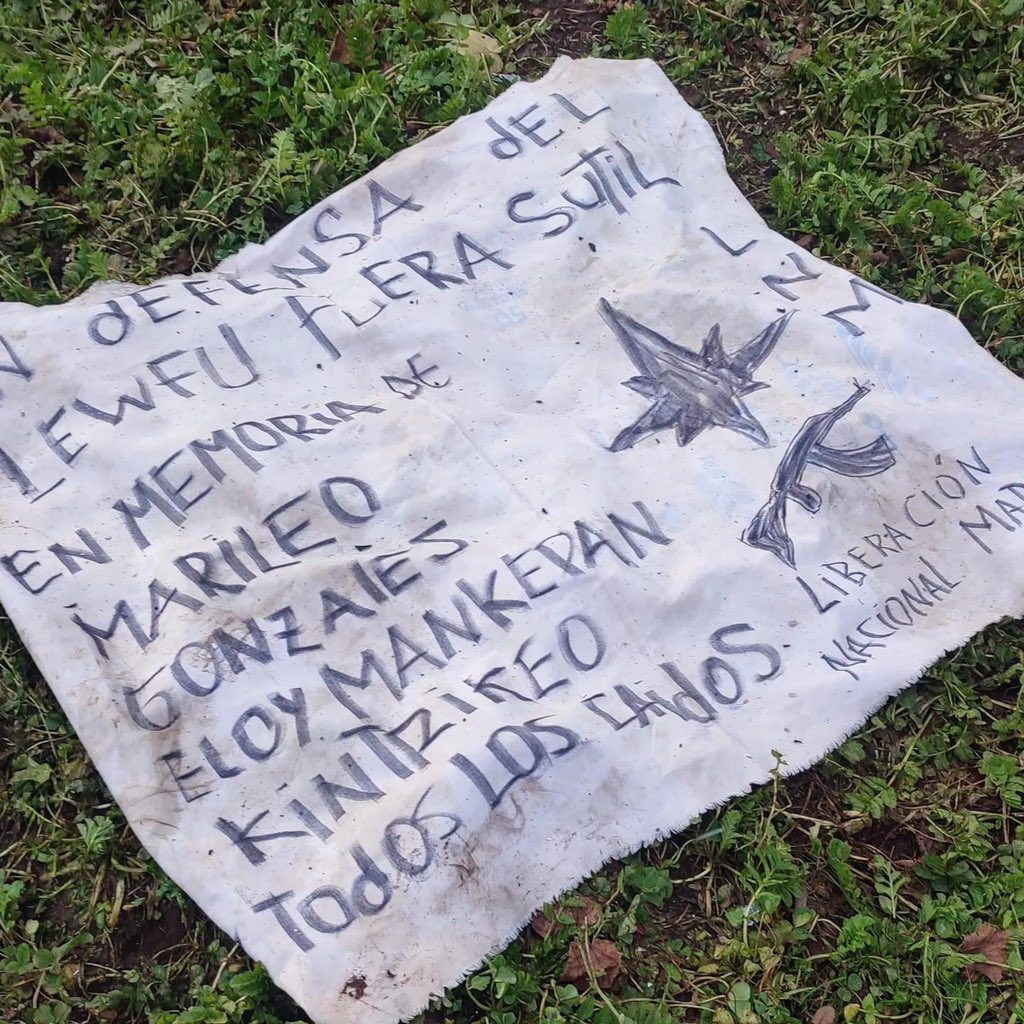 N DEFENSA DEL
LEWFU FUERA SUTIL
EN MEMORIA DE
MARILEO
GONZALES
ELOY MANKEPAN
KINTRIKEO
TODOS LOS CAIDOS
L
N
M
LIBERACIÓN
NACIONAL MAP